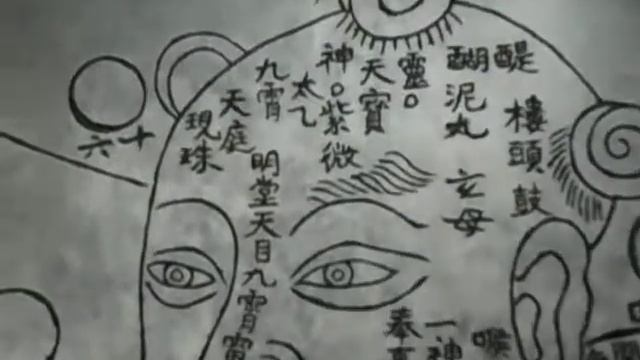 醍
醐
樓頭鼓
泥丸
玄母
靈。
天寶
神。紫微
太乙
九霄
天庭
現珠
明堂天目九霄
六十
奉
一神
喉